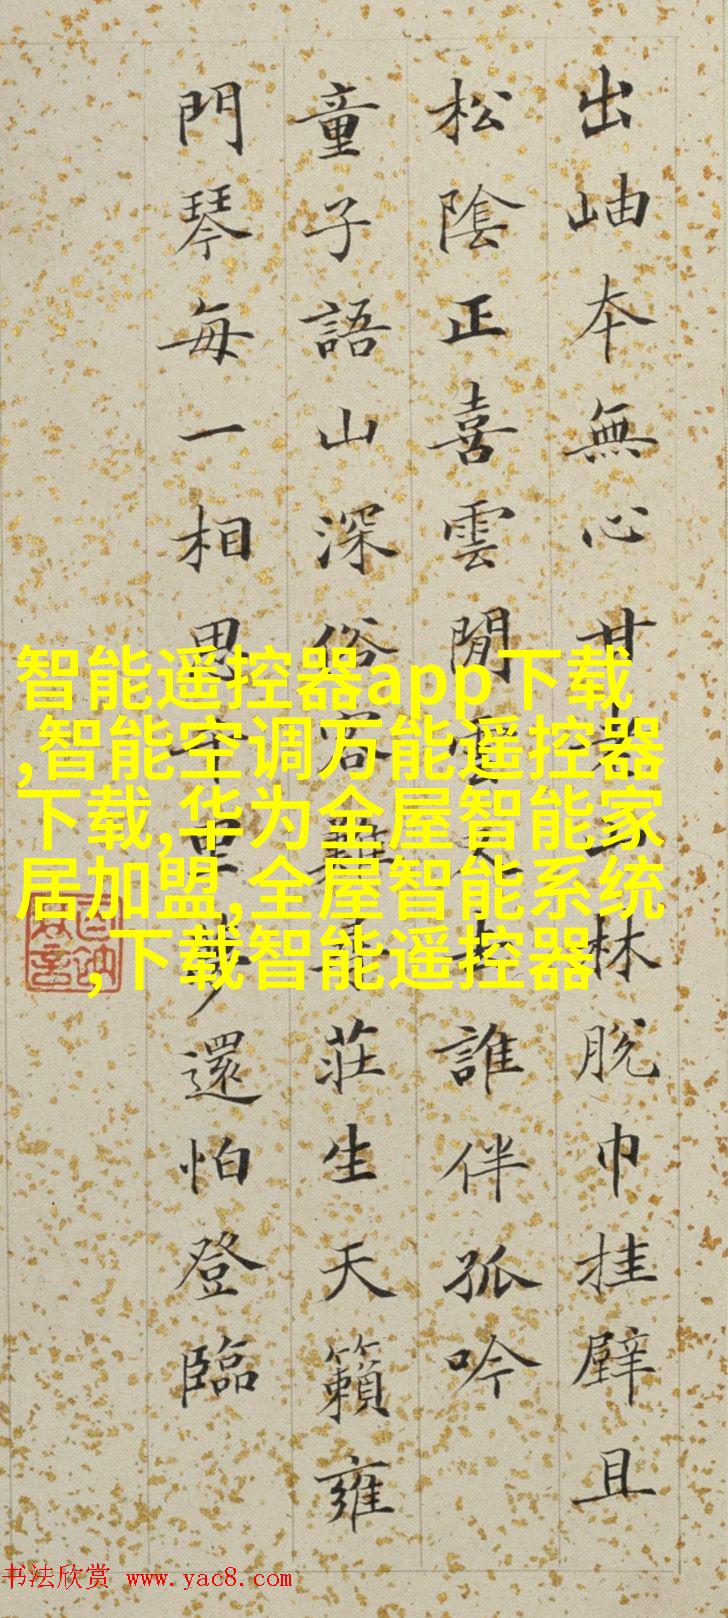 出岫本無心甘老林脫巾挂壁且
松陰正喜雲閒雲又去誰伴孤吟
童子語山深俗客難尋莊生天籟雍
門琴每一相思千里夢還怕登臨
智能遥控器app下载
,智能空调万能遥控器
下载,华为全屋智能家
居加盟,全屋智能系统
,下载智能遥控器
书法欣赏 www.yac8.com